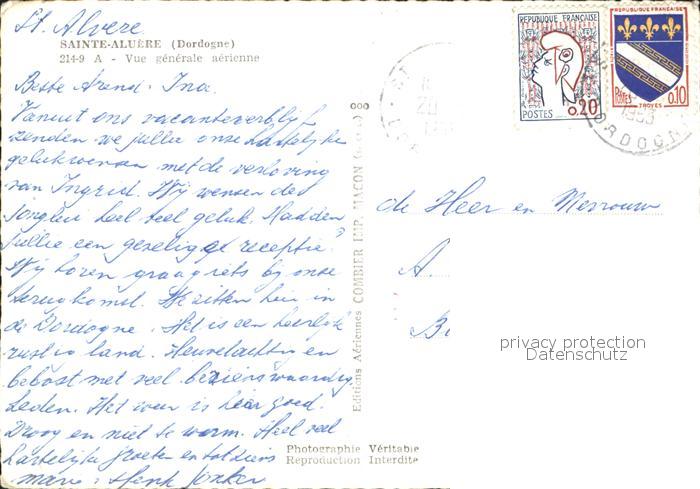 St. Alvere
SAINTE-ALUÈRE (Dordogne)
214-9 A - Vue générale aérienne
Beste Arend - Ina.
Vanuit ons vacantieverblijf
zenden we jullie onze hartelijke
gelukwensen met de verloving
van Ingrid. Wij wensen de
jongelui heel veel geluk. Hadden
jullie een gezellige receptie?
Wij horen graag iets bij onze
terugkomst. We zitten hier in
de Dordogne. Het is een heerlijk
rustig land. Heuvelachtig en
bebost met veel bezienswaardig
heden. Het weer is hier goed.
Droog en niet te warm. Heel veel
hartelijke groeten en tot ziens
Marie - Henk Jonker
Editions Aériennes COMBIER IMP. MACON
REPUBLIQUE FRANÇAISE
0,20
POSTES
REPUBLIQUE FRANÇAISE
POSTES
0,10
TROYES
1963
DORDOGNE
de Heer en Mevrouw
A.
B
privacy protection
Datenschutz
Photographie Véritable
Reproduction Interdite